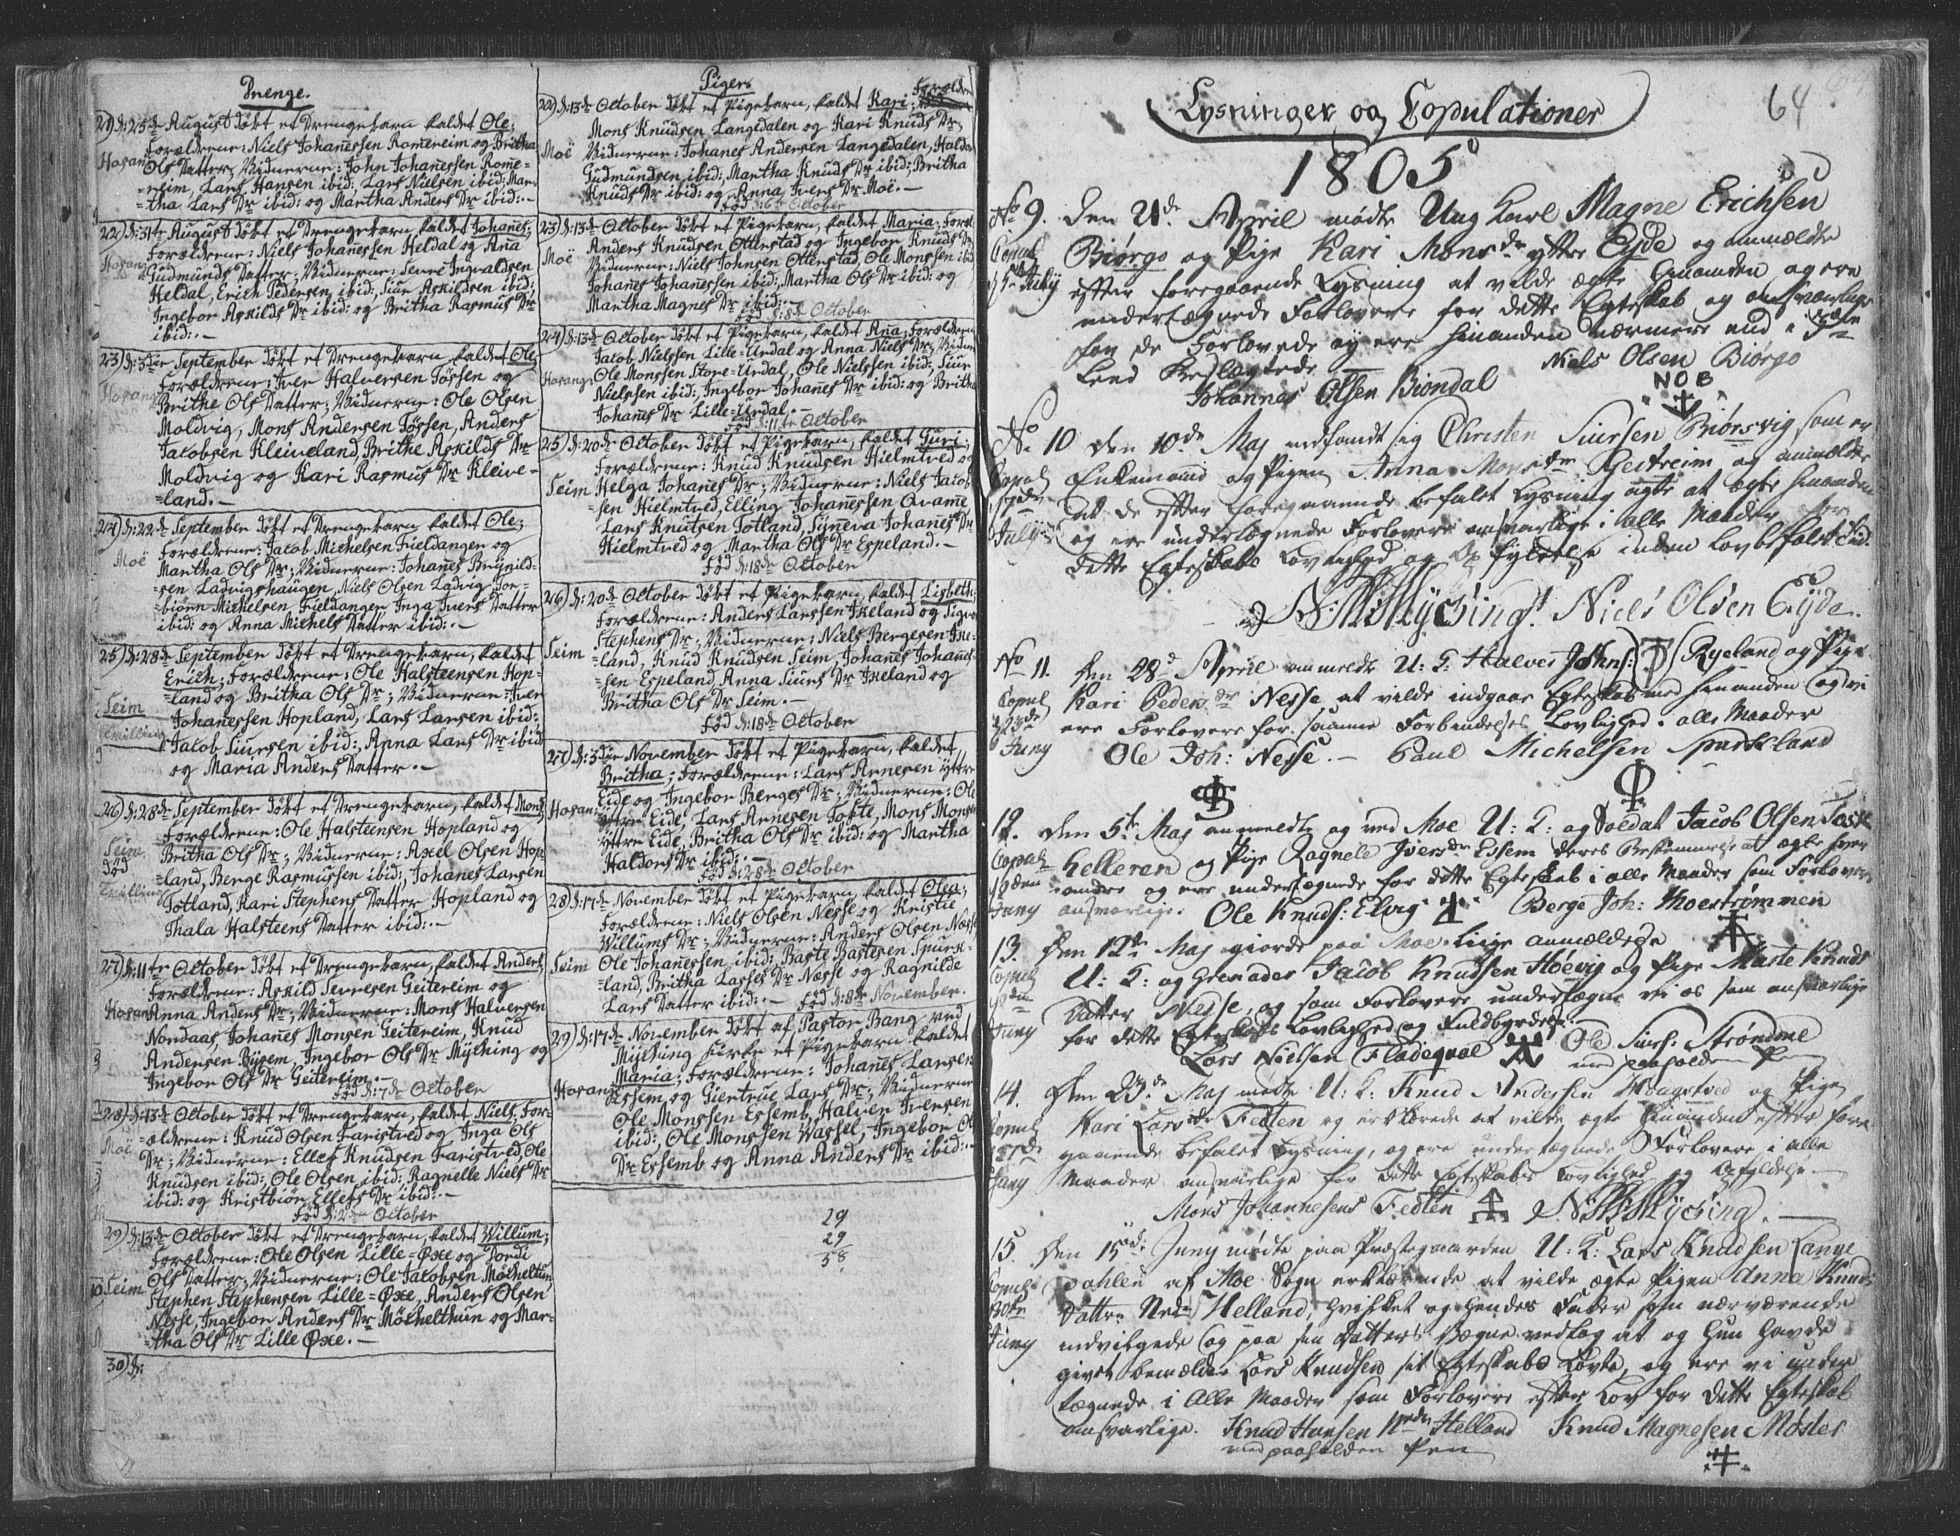 Drenge.
21) d: 25de August døbt et Drengebarn, kaldet Ole;
Forældrene: Niels Johanessen Romereim og Britha
Hosang
Ols Datter; Vidnerne: John Johanessen Rome-
=reim, Lars Hansen ibid: Lars Nielsen ibid: Mar-
tha Lars Dr ibid: og Martha Anders Dr ibid:.-
22) d: 31te August døbt et Drengebarn kaldet Johanes;
Forældrene: Niels Johanessen Heldal og Ana
Hosang
Gudmunds Datter; Vidnerne: Sevre Ingvaldsen
Heldal, Erich Pedersen, ibid: Siur Askildsen ibid:
Ingebor Askilds Dr ibid: og Britha Rasmus Dr
ibid:.-
23) d: 3die September døbt et Drengebarn, kaldet Ole,
Forældrene: Iver Halversen Tøssen og
Hosang
Brithe Ols Datter; Vidnerne: Ole Olsen
Moldvig, Mons Andersen Tøssen, Anders
Jacobsen Kleiveland, Brithe Askilds Dr
Moldvig og Kari Rasmus Dr Kleive-
=land.-
24) d: 22de September døbt et Drengebarn, kaldet Ole;
Forældrene: Jacob Michelsen Fieldangen og
Moë
Martha Ols Dr; Vidnerne: Johanes Brynild-
=sen Ladvigshaugen, Niels Olsen Ladvig, Tor-
=biørn Michelsen Fieldangen Inga Ivers Datter
ibid: og Anna Michels Datter ibid:.-
25) d: 28de September døbt et Drengebarn, kaldet
Erich; Forældrene: Ole Halsteensen Hop-
=land og Britha Ols Dr; Vidnerne: Iver
Seim
Johanessen Hopland, Lars Larsen ibid:
Tvilling
Jacob Siursen ibid:, Anna Lars Dr ibid
og Maria Anders Datter.-
26) d: 28de September døbt et Drengebarn, kaldet Mons,
Forældrene: Ole Halsteensen Hopland og
Seim
Britha Ols Dr; Vidnerne: Axel Olsen Hop-
død
=land, Berge Rasmussen ibid:, Johanes Larsen
Tvilling
Totland, Kari Stephens Datter Hopland og
Thala Halsteens Datter ibid:.-
27) d: 11te October døbt et Drengebarn, kaldet Anders,
Forældrene: Askild Sevresen Geitereim og
Hosang
Anna Anders Dr; Vidnerne: Mons Halversen
Nordaas, Johanes Monsen Geitereim, Knud
Andersen Bysem, Ingebor Ols Dr Mÿking og
Ingebor Ols Dr Geitereim.-
fød d: 7de October
28) d: 13de October døbt et Drengebarn, kaldet Niels, For-
=ældrene: Knud Olsen Faristved og Inga Ols
Moë
Dr; Vidnerne: Ellef Knudsen Faristved, Ole
Knudsen ibid: Ole Olsen ibid: Ragnelle Niels Dr
ibid: og Kristbiør Ellefs Dr ibid:.-
fød d: 2den October
29) d: 13de October døbt et Drengebarn, kaldet Willum;
Forældrene: Ole Olsen Lille=Øxe og Dordi
Ols Datter; Vidnerne: Ole Jacobsen Mösheltun
Seim
Stephen Stephensen Lille=Øxe, Anders Olsen
Nesse, Ingebor Anders Dr Mösheltun og Mar-
=tha Ols Dr Lille Øxe.-
30) d:
Piger.
22) d: 13de October døbt et Pigebarn, kaldet Kari; Forældre
Mons Knudsen Langedalen og Kari Knuds Dr,
Moë
Vidnerne: Johanes Andersen Langedalen, Haldor
Gudmundsen ibid:, Martha Knuds Dr ibid:, Britha
Knuds Dr ibid: og Anna Ivers Dr Moë.-
fød d: 6te October
23) d: 13de October døbt et Pigebarn, kaldet Maria; Foræl
Anders Knudsen Otterstad og Ingebor Knuds Dr
Moë
Vidnerne: Niels Johnsen Otterstad, Ole Monssen ibid
Johanes Johanessen ibid:, Martha Ols Dr ibid: og
Martha Magnes Dr ibid:.-
fød d: 8de October
24) d: 13de October døbt et Pigebarn, kaldet Ana; Forældren
Jacob Nielssen Lille=Urdal og Anna Niels Dr; Vidner
Hosang
Ole Monssen Store=Urdal, Ole Nielssen ibid:, Siur
Nielssen ibid:, Ingebor Johanes Dr ibid: og Britha
Johanes Dr Lille=Urdal.-
fød d: 11te October
25) d: 20de October døbt et Pigebarn, kaldet Guri;
Forældrene: Knud Knudsen Hielmtved og
Seim
Helga Johanes Dr; Vidnerne: Niels Jacob
sen Hielmtved, Elling Johanessen Qvame
Lars Knutsen Totland, Signeva Johanes Dr
Hielmtved og Martha Ols Dr Espeland.-
fød d: 18de October
26) d: 20de October døbt et Pigebarn, kaldet Lisbeth;
Forældrene: Anders Larssen Ikeland og Sigva
Stephens Dr; Vidnerne: Niels Bergesen Ike-
Seim
=land, Knud Knudsen Seim, Johanes Johanes-
=sen Espeland, Anna Siurs Dr Ikeland og
Britha Ols Dr Seim.-
fød d: 18de October
27) d: 3die November døbt et Pigebarn, kaldet
Britha; Forældrene: Lars Arnesen Ÿttre
Eide og Ingebor Berges Dr; Vidnerne: Ole
Hosang
Ÿttre Eide, Lars Arnesen Tofte, Mons Monsen
Ÿttre Eide, Britha Ols Dr ibid: og Martha
Haldors Dr ibid:.-
fød d: 28de October
28) d: 17de November døbt et Pigebarn, kaldet Olea;
Forældrene: Niels Olsen Nesse og Kristie
Willums Dr; Vidnerne: Anders Olsen Nesse
Seim
Ole Johanessen, ibid:, Baste Bastesen Spurk-
=land, Britha Lasses Dr Nesse og Ragnilde
Lars Datter ibid:.- fød d: 8de November.
29) d: 17de November døbt af Pastor Bang ved
Mÿking kirke et Pigebarn kaldet
Maria; Forældrene: Johanes Larsen
Hosang
Essem og Giertrue Lars Dr; Vidnerne
Ole Monssen Essemb, Halver Iversen
ibid:, Ole Monssen Wassel, Ingebor Ol
Dr Essemb og Anna Anders Dr ibid:.-
29
29
58.
64
Lysninger og Copulationer
1805
No 9. Den 21de April mødte Ung Karl Magne Erichsen
Copul
Biørgo og Pige Kari Monsdr ytter Eyde og anmældte
5te July
efter foregaaende Lysning at vilde ægte hinanden og ere
undertægnede Forlovere for dette Egteskab og ansvarlige
for de Forlovede ey ere hinanden nærmere end i 3die
Leed Beslægtede
Niels Olsen Biørgo
Johannes Olsen Biøndal
NOB
No 10 Den 10de Maj indfandt sig Christen Siursen Biørnsvig som er
Copul
Enkemand og Pigen Anna Monsdtr Geitreim og anmældte
7de
at de efter foregaaende befalet Lysning agte at ægte hinanden
July
og ere undertægnede Forlovere ansvarlige i alle Maader for
dette Egteskabs Lovlighed og Opfyldelse inden lovbefalet Tid.
Niels Olsen Eyde.
No 11. Den 28d April anmeldte U: K: Halver Johns: Ryeland og Pige
Copul
Kari Peders dr Nesse at vilde indgaae Egteskab med hinanden og vi
23de
ere Forlovere for samme Forbindelses Lovlighed i alle Maader
Juny
Ole Joh: Nesse.- Paul Michelsen Spurkland
12. Den 5te Maj anmeldte og ved Moe U: K: og Soldat Jacob Olsen Task
Copul
Kelleren og Pige Ragnele Iversdr Essem deres Bestemmelse at ægte hver
andre og ere undertægnede for dette Egteskab i alle Maader som Forlovere
Juny
ansvarlige. Ole Knuds: Elvig Berge Joh: Moestrømmen
13. Den 12te Maj giorde paa Moe liige anmældelse
Copul
U: K: og Grenader Jacob Knudsen Høevig og Pige Marte Knuds
Datter Nesse, og som Forlovere undertægne vi os som ansvarlige
Juny
for dette Egteskabs Lovlighed og Fuldbyrdelse
Ole Siurs: Strømme
Lars Nielsen Fladeqval
med paaholden Pen
14. Den 23de Maj mødte U: K: Knud Andersen Wagstved og Pige
Copul
Kari Larsdr Fedten og erklærede at vilde ægte hinanden efter fore
gaaende befalet Lysning, og ere undertægnede Forlovere i alle
Juny
Maader ansvarlige for dette Egteskabs Lovlighed og Opfyldelse.
Mons Johannesens Fedten
15. Den 15de Juny mødte paa Præstegaarden U: K: Lars Knudsen Lange
Copul
dahlen af Moe Sogn erklærende at vilde ægte Pigen Anna Knuds
30te
Dattr Nedr Helland, hvilket og hendes Fader som nærværende
Juny
indvilgede og paa sin Datters Vegne vedtog at og hun havde
givet bemældte Lars Knudsen sit Egteskabs Løvte, og ere vi under
tægnede i alle Maader som Forlovere efter Lov for dette Egteskab
ansvarlige. Knud Hansen Nedr Helland Knud Magnesen Møster
med paaholden Pen